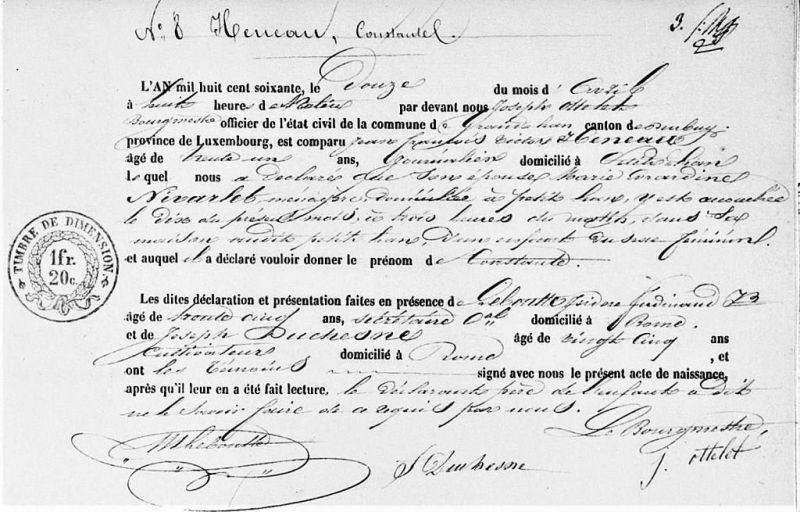 N.º 8 Heneau, Constante.
3.
L'AN mil huit cent soixante, le Douze du mois d'Avril
à huit heures de Matin par devant nous Joseph Ottelet
Bourgmestre officier de l'état civil de la commune de Grandhan canton de Durbuy,
province de Luxembourg, est comparu jean françois Heneau
âgé de trente un ans, journalier domicilié à Petithan
lequel nous a déclaré que Son épouse Marie
Nivarlet ménagère, domiciliée à petit han, y est accouchée
le dix du présent mois, à trois heures du matin, dans Sa
maison audit petit han, D'un enfant du sexe féminin.
et auquel il a déclaré vouloir donner le prénom de Constante.
Les dites déclaration et présentation faites en présence de Leboutte Isidore
âgé de trente cinq ans, secrétaire Cal domicilié à Rome.
et de Joseph Duchesne âgé de vingt cinq ans
Cultivateur domicilié à Rome, et
ont les témoins signé avec nous le présent acte de naissance,
après qu'il leur en a été fait lecture, le déclarant père de l'enfant a dit
ne le Savoir faire de ce requis par nous.
Leboutte
J Duchesne
Le Bourgmestre,
J. Ottelet
TIMBRE DE DIMENSION
1fr.
20c.